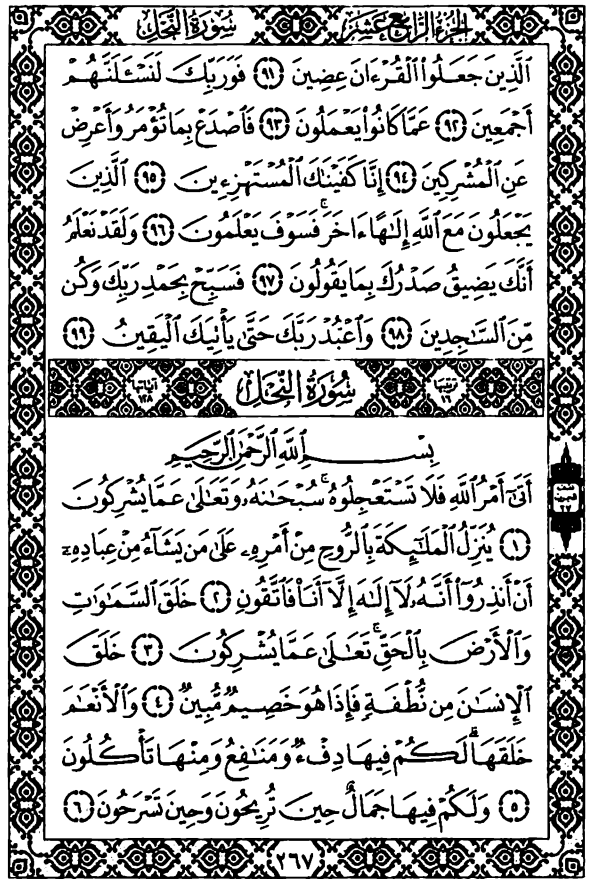 الجزء الرابع عشر سورة النحل
ٱلَّذِينَ جَعَلُوا۟ ٱلْقُرْءَانَ عِضِينَ ٩١ فَوَرَبِّكَ لَنَسْـَٔلَنَّهُمْ
أَجْمَعِينَ ٩٢ عَمَّا كَانُوا۟ يَعْمَلُونَ ٩٣ فَٱصْدَعْ بِمَا تُؤْمَرُ وَأَعْرِضْ
عَنِ ٱلْمُشْرِكِينَ ٩٤ إِنَّا كَفَيْنَـٰكَ ٱلْمُسْتَهْزِءِينَ ٩٥ ٱلَّذِينَ
يَجْعَلُونَ مَعَ ٱللَّهِ إِلَـٰهًا ءَاخَرَ ۚ فَسَوْفَ يَعْلَمُونَ ٩٦ وَلَقَدْ نَعْلَمُ
أَنَّكَ يَضِيقُ صَدْرُكَ بِمَا يَقُولُونَ ٩٧ فَسَبِّحْ بِحَمْدِ رَبِّكَ وَكُن
مِّنَ ٱلسَّـٰجِدِينَ ٩٨ وَٱعْبُدْ رَبَّكَ حَتَّىٰ يَأْتِيَكَ ٱلْيَقِينُ ٩٩
ترتيبها ١٦ سورة النحل آياتها ١٢٨
بِسْمِ ٱللَّهِ ٱلرَّحْمَـٰنِ ٱلرَّحِيمِ
أَتَىٰٓ أَمْرُ ٱللَّهِ فَلَا تَسْتَعْجِلُوهُ ۚ سُبْحَـٰنَهُۥ وَتَعَـٰلَىٰ عَمَّا يُشْرِكُونَ
١ يُنَزِّلُ ٱلْمَلَـٰٓئِكَةَ بِٱلرُّوحِ مِنْ أَمْرِهِۦ عَلَىٰ مَن يَشَآءُ مِنْ عِبَادِهِۦٓ
أَنْ أَنذِرُوٓا۟ أَنَّهُۥ لَآ إِلَـٰهَ إِلَّآ أَنَا۠ فَٱتَّقُونِ ٢ خَلَقَ ٱلسَّمَـٰوَٰتِ
وَٱلْأَرْضَ بِٱلْحَقِّ ۚ تَعَـٰلَىٰ عَمَّا يُشْرِكُونَ ٣ خَلَقَ
ٱلْإِنسَـٰنَ مِن نُّطْفَةٍ فَإِذَا هُوَ خَصِيمٌ مُّبِينٌ ٤ وَٱلْأَنْعَـٰمَ
خَلَقَهَا ۗ لَكُمْ فِيهَا دِفْءٌ وَمَنَـٰفِعُ وَمِنْهَا تَأْكُلُونَ
٥ وَلَكُمْ فِيهَا جَمَالٌ حِينَ تُرِيحُونَ وَحِينَ تَسْرَحُونَ ٦
٢٦٧